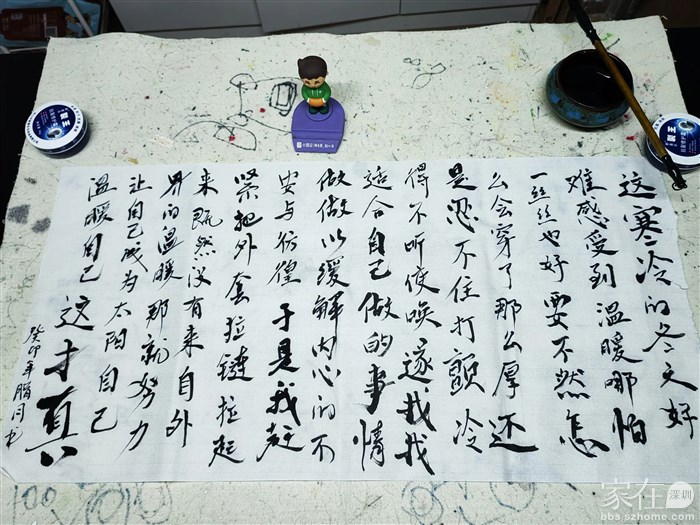 这寒冷的冬天好
难感受到温暖哪怕
一丝丝也好要不然怎
么会穿了那么厚还
是忍不住打颤冷
得不听使唤遂找找
适合自己做的事情
做做以缓解内心的不
安与彷徨于是我赶
紧把外套拉链拉起
来既然没有来自外
界的温暖那就努力
让自己成为太阳自己
温暖自己这才真
癸卯年腊月书
100
家在深圳
bbs.szhome.com